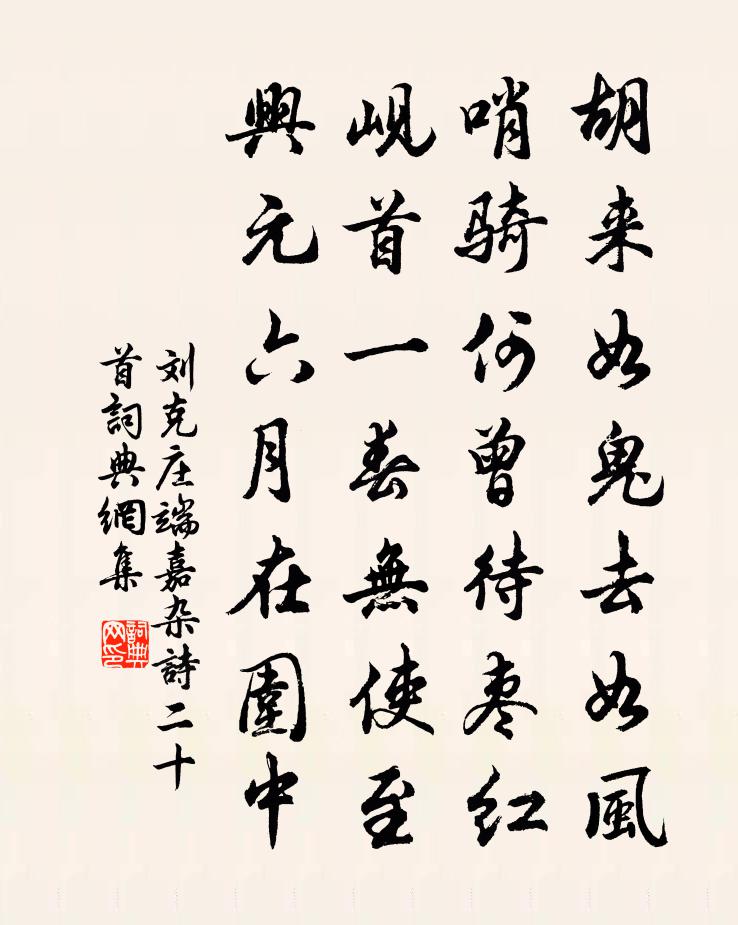 胡来如鬼去如風
哨骑何曾待枣红
峴首一春無使至
興元六月在圍中
刘克庄端嘉杂詩二十
首詞典網集
詞典
网印